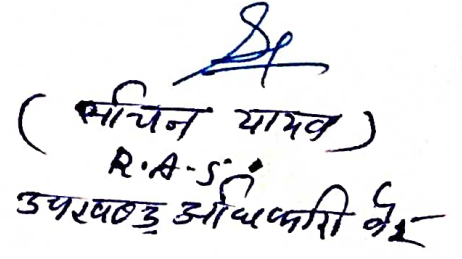 ( सचिन यादव )
R.A.S.
उपखण्ड अधिकारी वैर